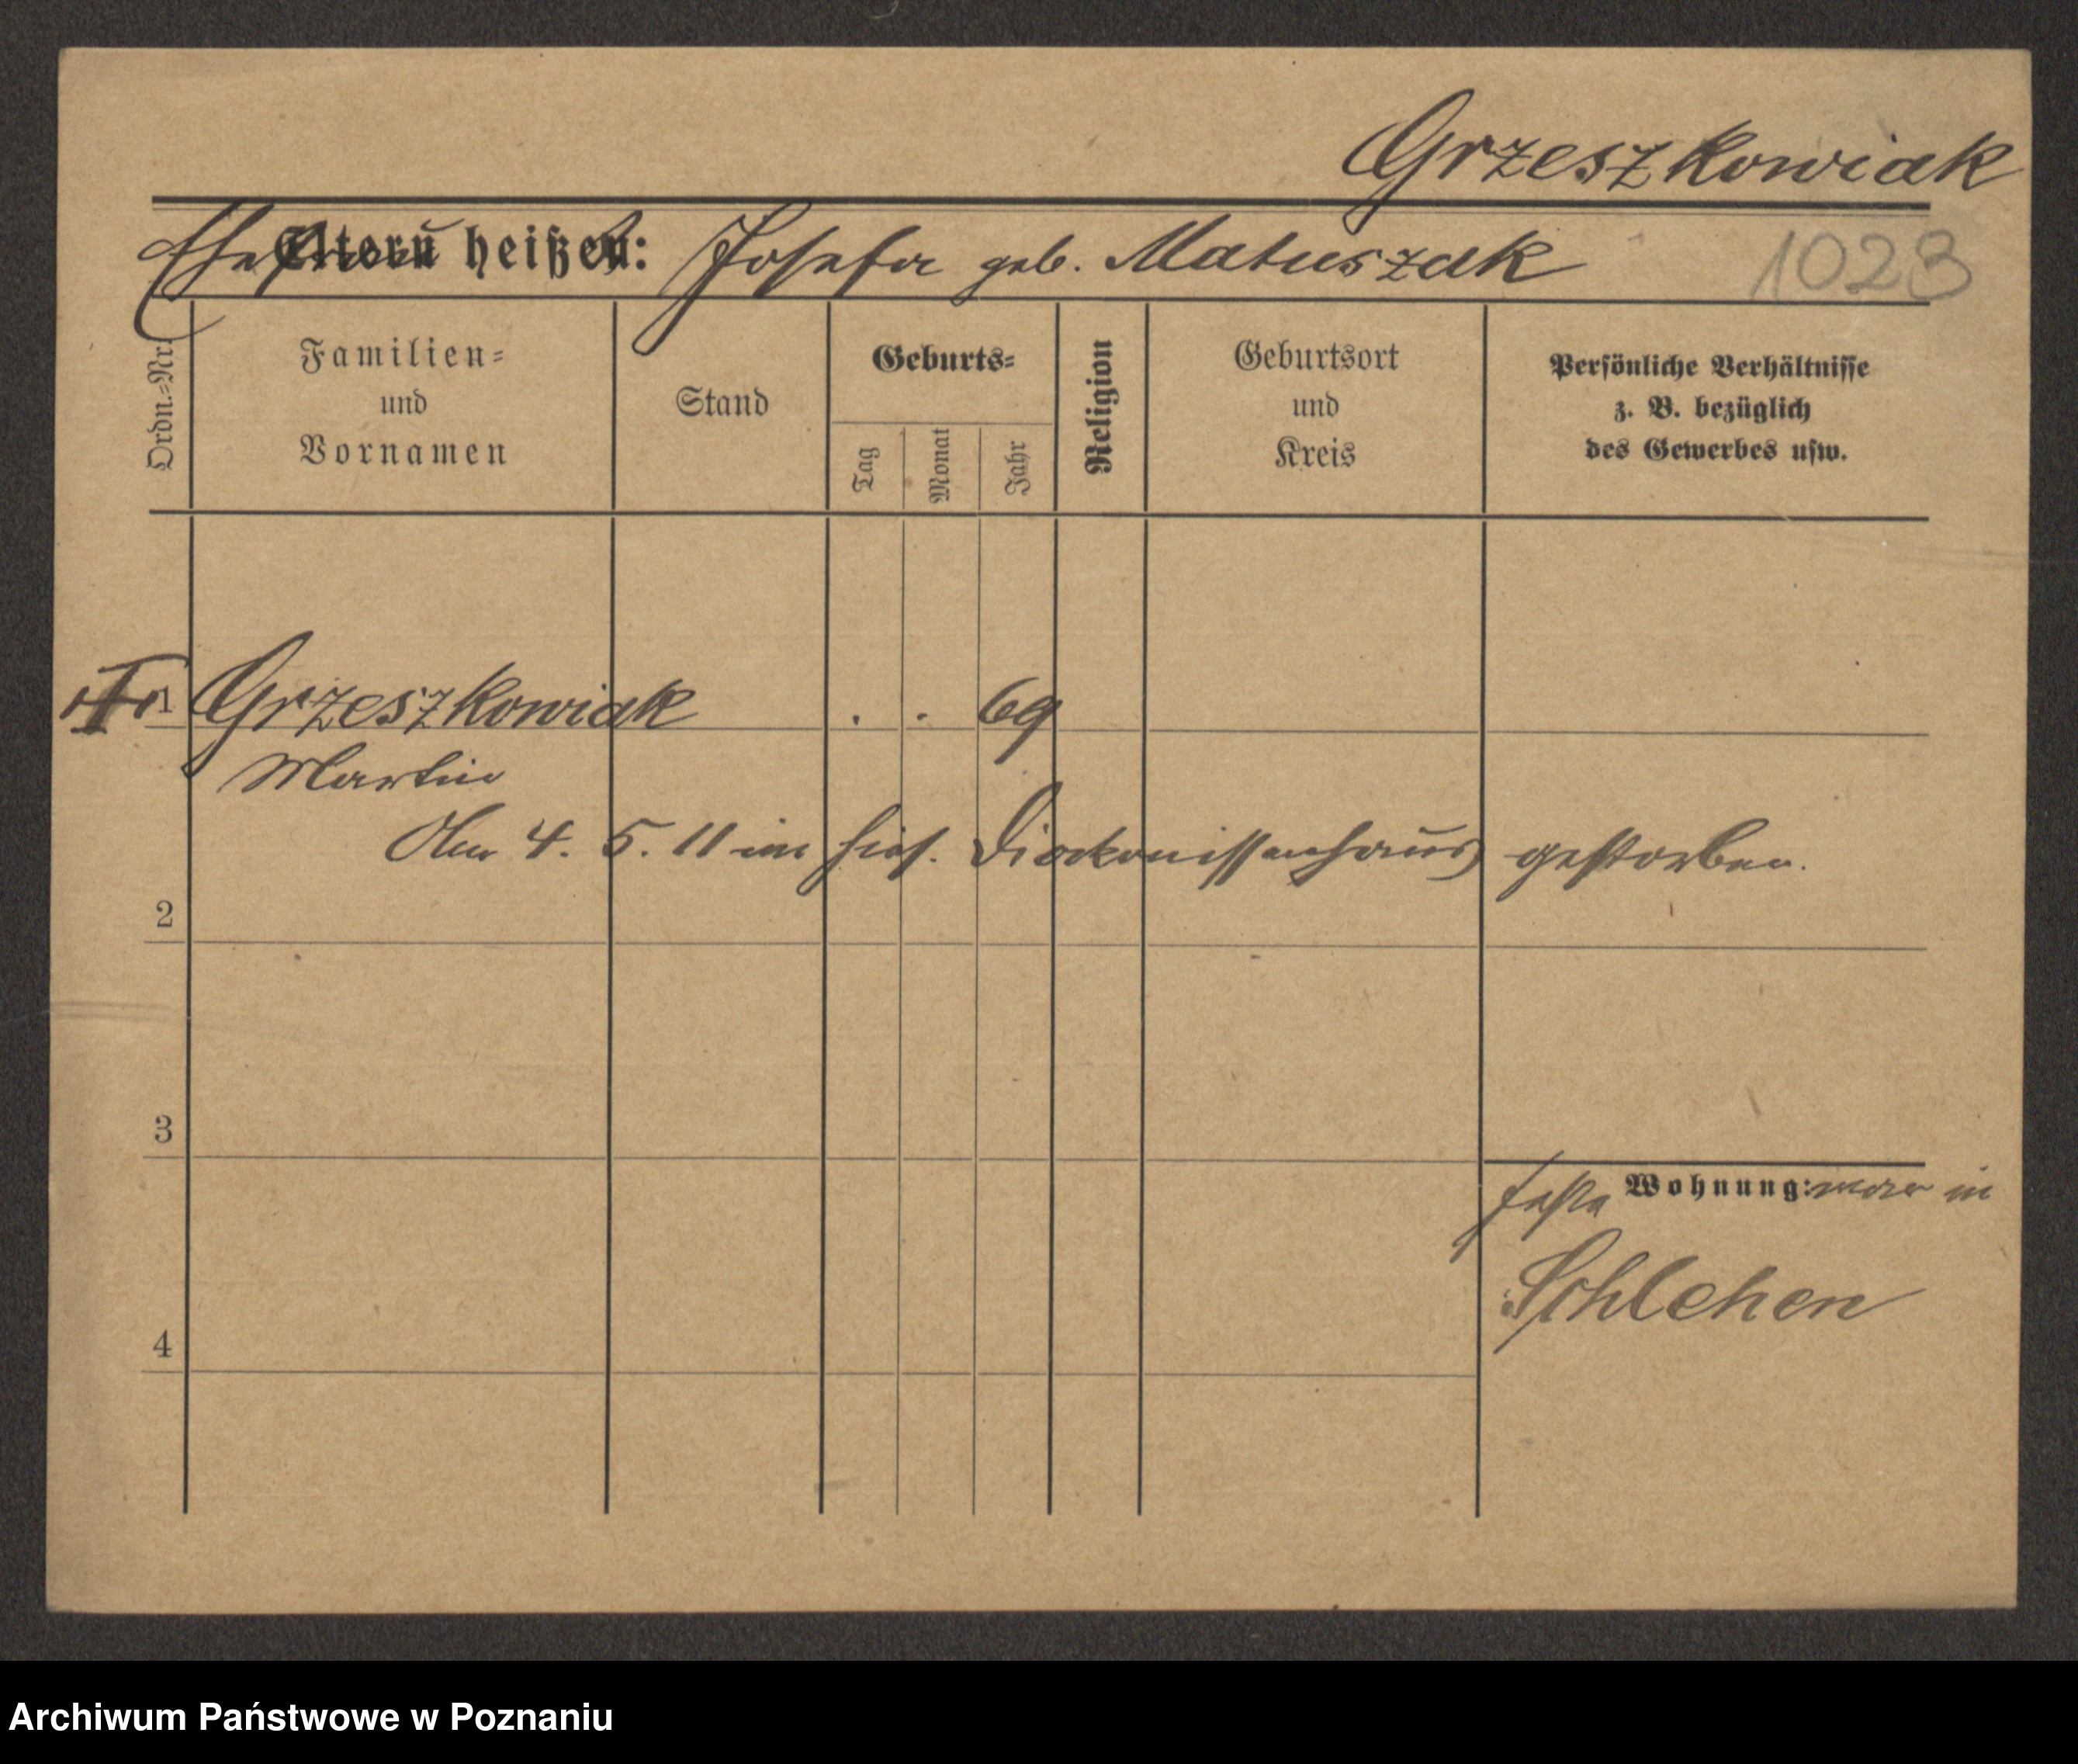 Grzeszkowiak
Ehefrau
Eltern heißen: Josefa geb. Matuszak
1023
Ordn.-Nr.
Familien-
und
Vornamen
Stand
Geburts-
Tag
Monat
Jahr
Religion
Geburtsort
und
Kreis
Persönliche Verhältnisse
z. B. bezüglich
des Gewerbes usw.
1 Grzeszkowiak . . 69
Martin
Am 4. 5. 11 im hies. Diakonissenhaus gestorben.
2
3
feste Wohnung: war in
Schlehen
4
Archiwum Państwowe w Poznaniu